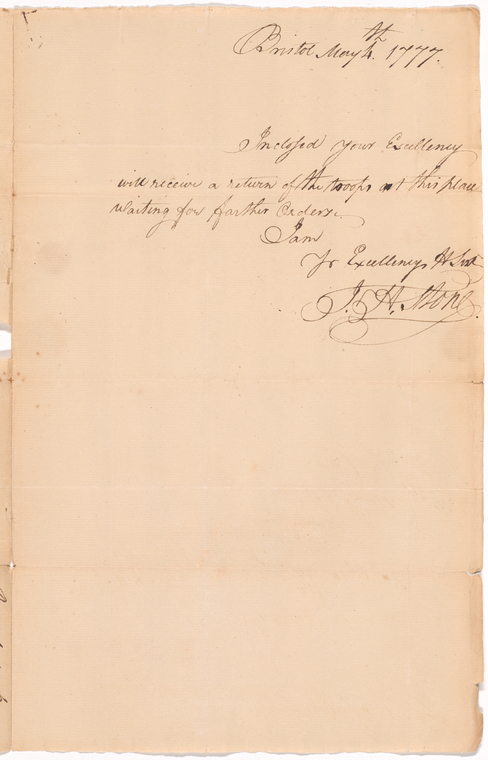 Bristol May 4th. 1777.
Inclosed your Excellency
will receive a return of the troops at this place
waiting for farther Orders.
I am
Yr Excellencys H Svt
J. H. Stone.